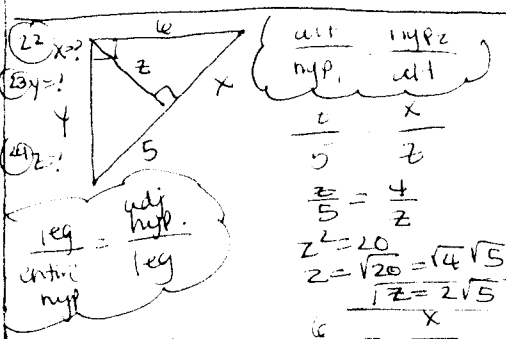 22 x=?
6
23 y=?
z
x
y
24 z=?
5
leg / entire hyp = adj hyp. / leg
alt / hyp₁ hyp₂ / alt
z / 5 x / z
z / 5 = 4 / z
z² = 20
z = √20 = √4 √5
z = 2√5
6 x